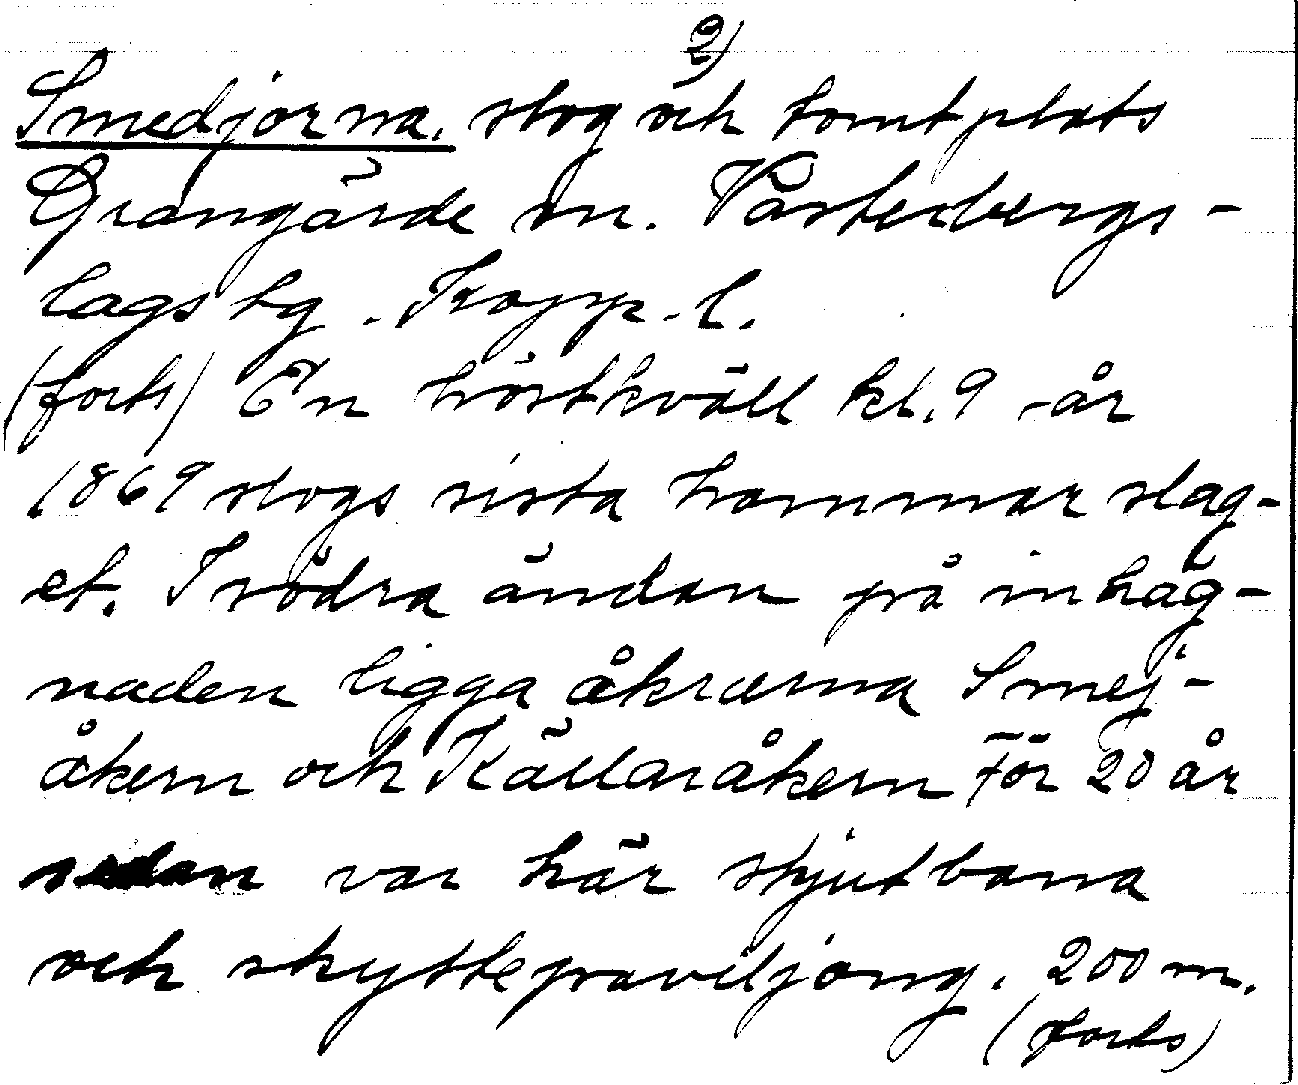 2)
Smedjorna. skog och tomtplats
Grangärde sn. Västerbergs-
lags hg. Kopp. l.
(forts) En höstkväll kl. 9 - år
1869 slogs sista hammarslag-
et. I södra ändan på inhäg-
naden ligga åkrarna Smej-
åkern och Källaråkern För 20 år
sedan var här skjutbana
och skyttepaviljong. 200 m.
(forts)